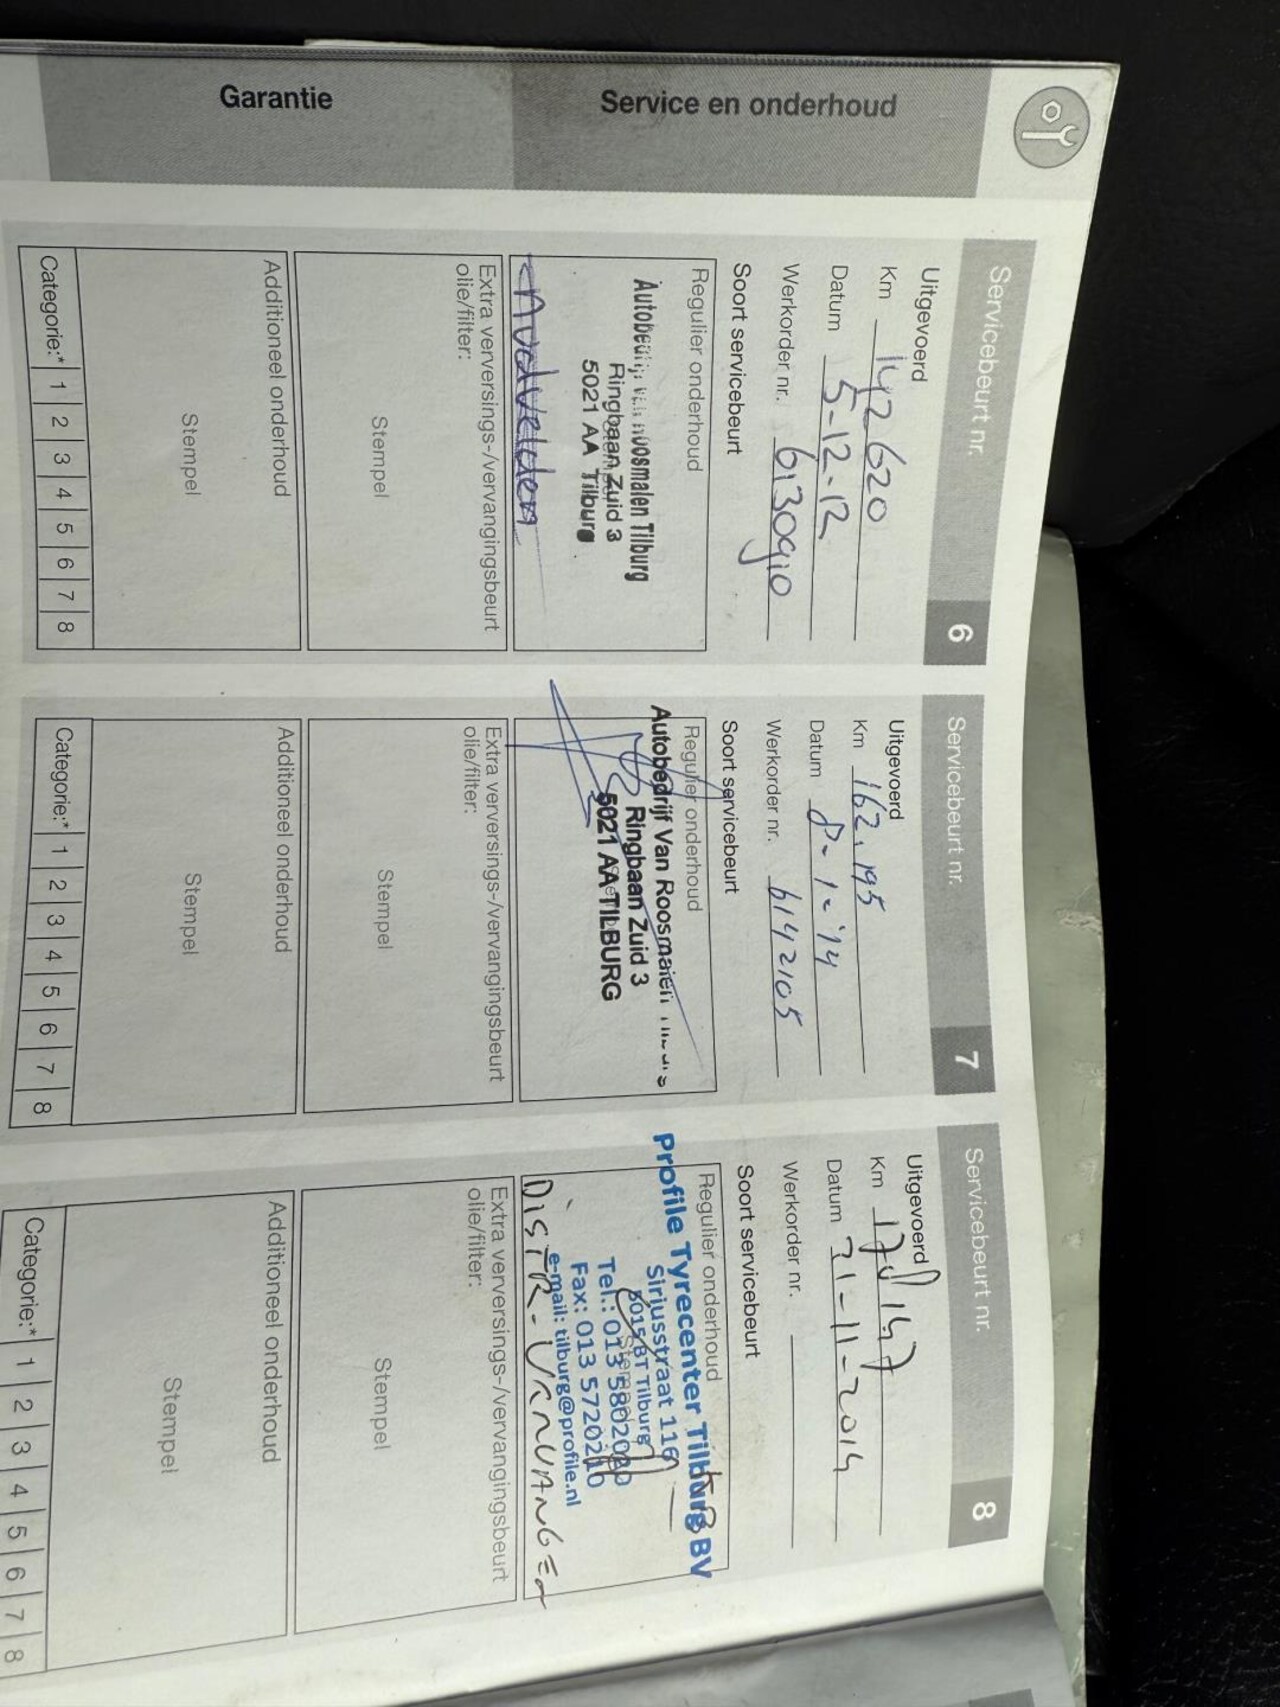 Service en onderhoud
Garantie
Servicebeurt nr. 6
Uitgevoerd
Km 142620
Datum 5-12-12
Werkorder nr. 6130910
Soort servicebeurt
Regulier onderhoud
Tilburg
Ringbaan Zuid 3
5021 AA Tilburg
Extra verversings-/vervangingsbeurt
olie/filter:
Stempel
Additioneel onderhoud
Stempel
Categorie:* 1 2 3 4 5 6 7 8
Servicebeurt nr. 7
Uitgevoerd
Km 162.195
Datum 8-1-'14
Werkorder nr. 6142105
Soort servicebeurt
Regulier onderhoud
Autobedrijf Van Roosmalen
Ringbaan Zuid 3
5021 AA TILBURG
Extra verversings-/vervangingsbeurt
olie/filter:
Stempel
Additioneel onderhoud
Stempel
Categorie:* 1 2 3 4 5 6 7 8
Servicebeurt nr. 8
Uitgevoerd
Km 178147
Datum 21-11-2014
Werkorder nr.
Soort servicebeurt
Regulier onderhoud
Profile Tyrecenter Tilburg BV
Siriusstraat 116
5015 BT Tilburg
Tel.: 013 5802020
Fax: 013 5720210
e-mail: tilburg@profile.nl
DISTR-VERVANGEN
Extra verversings-/vervangingsbeurt
olie/filter:
Stempel
Additioneel onderhoud
Stempel
Categorie:* 1 2 3 4 5 6 7 8